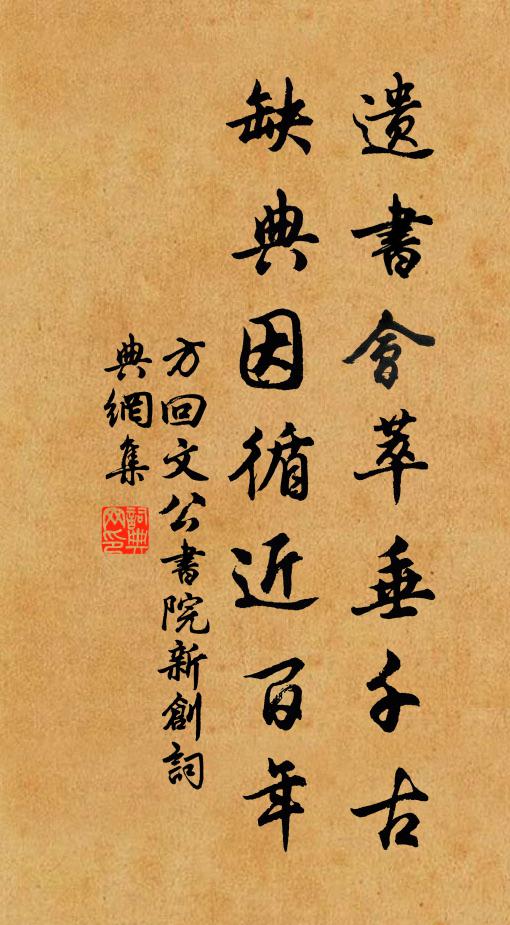 遺書會萃垂千古
缺典因循近百年
方回文公書院新創詞
典網集
詞典網印